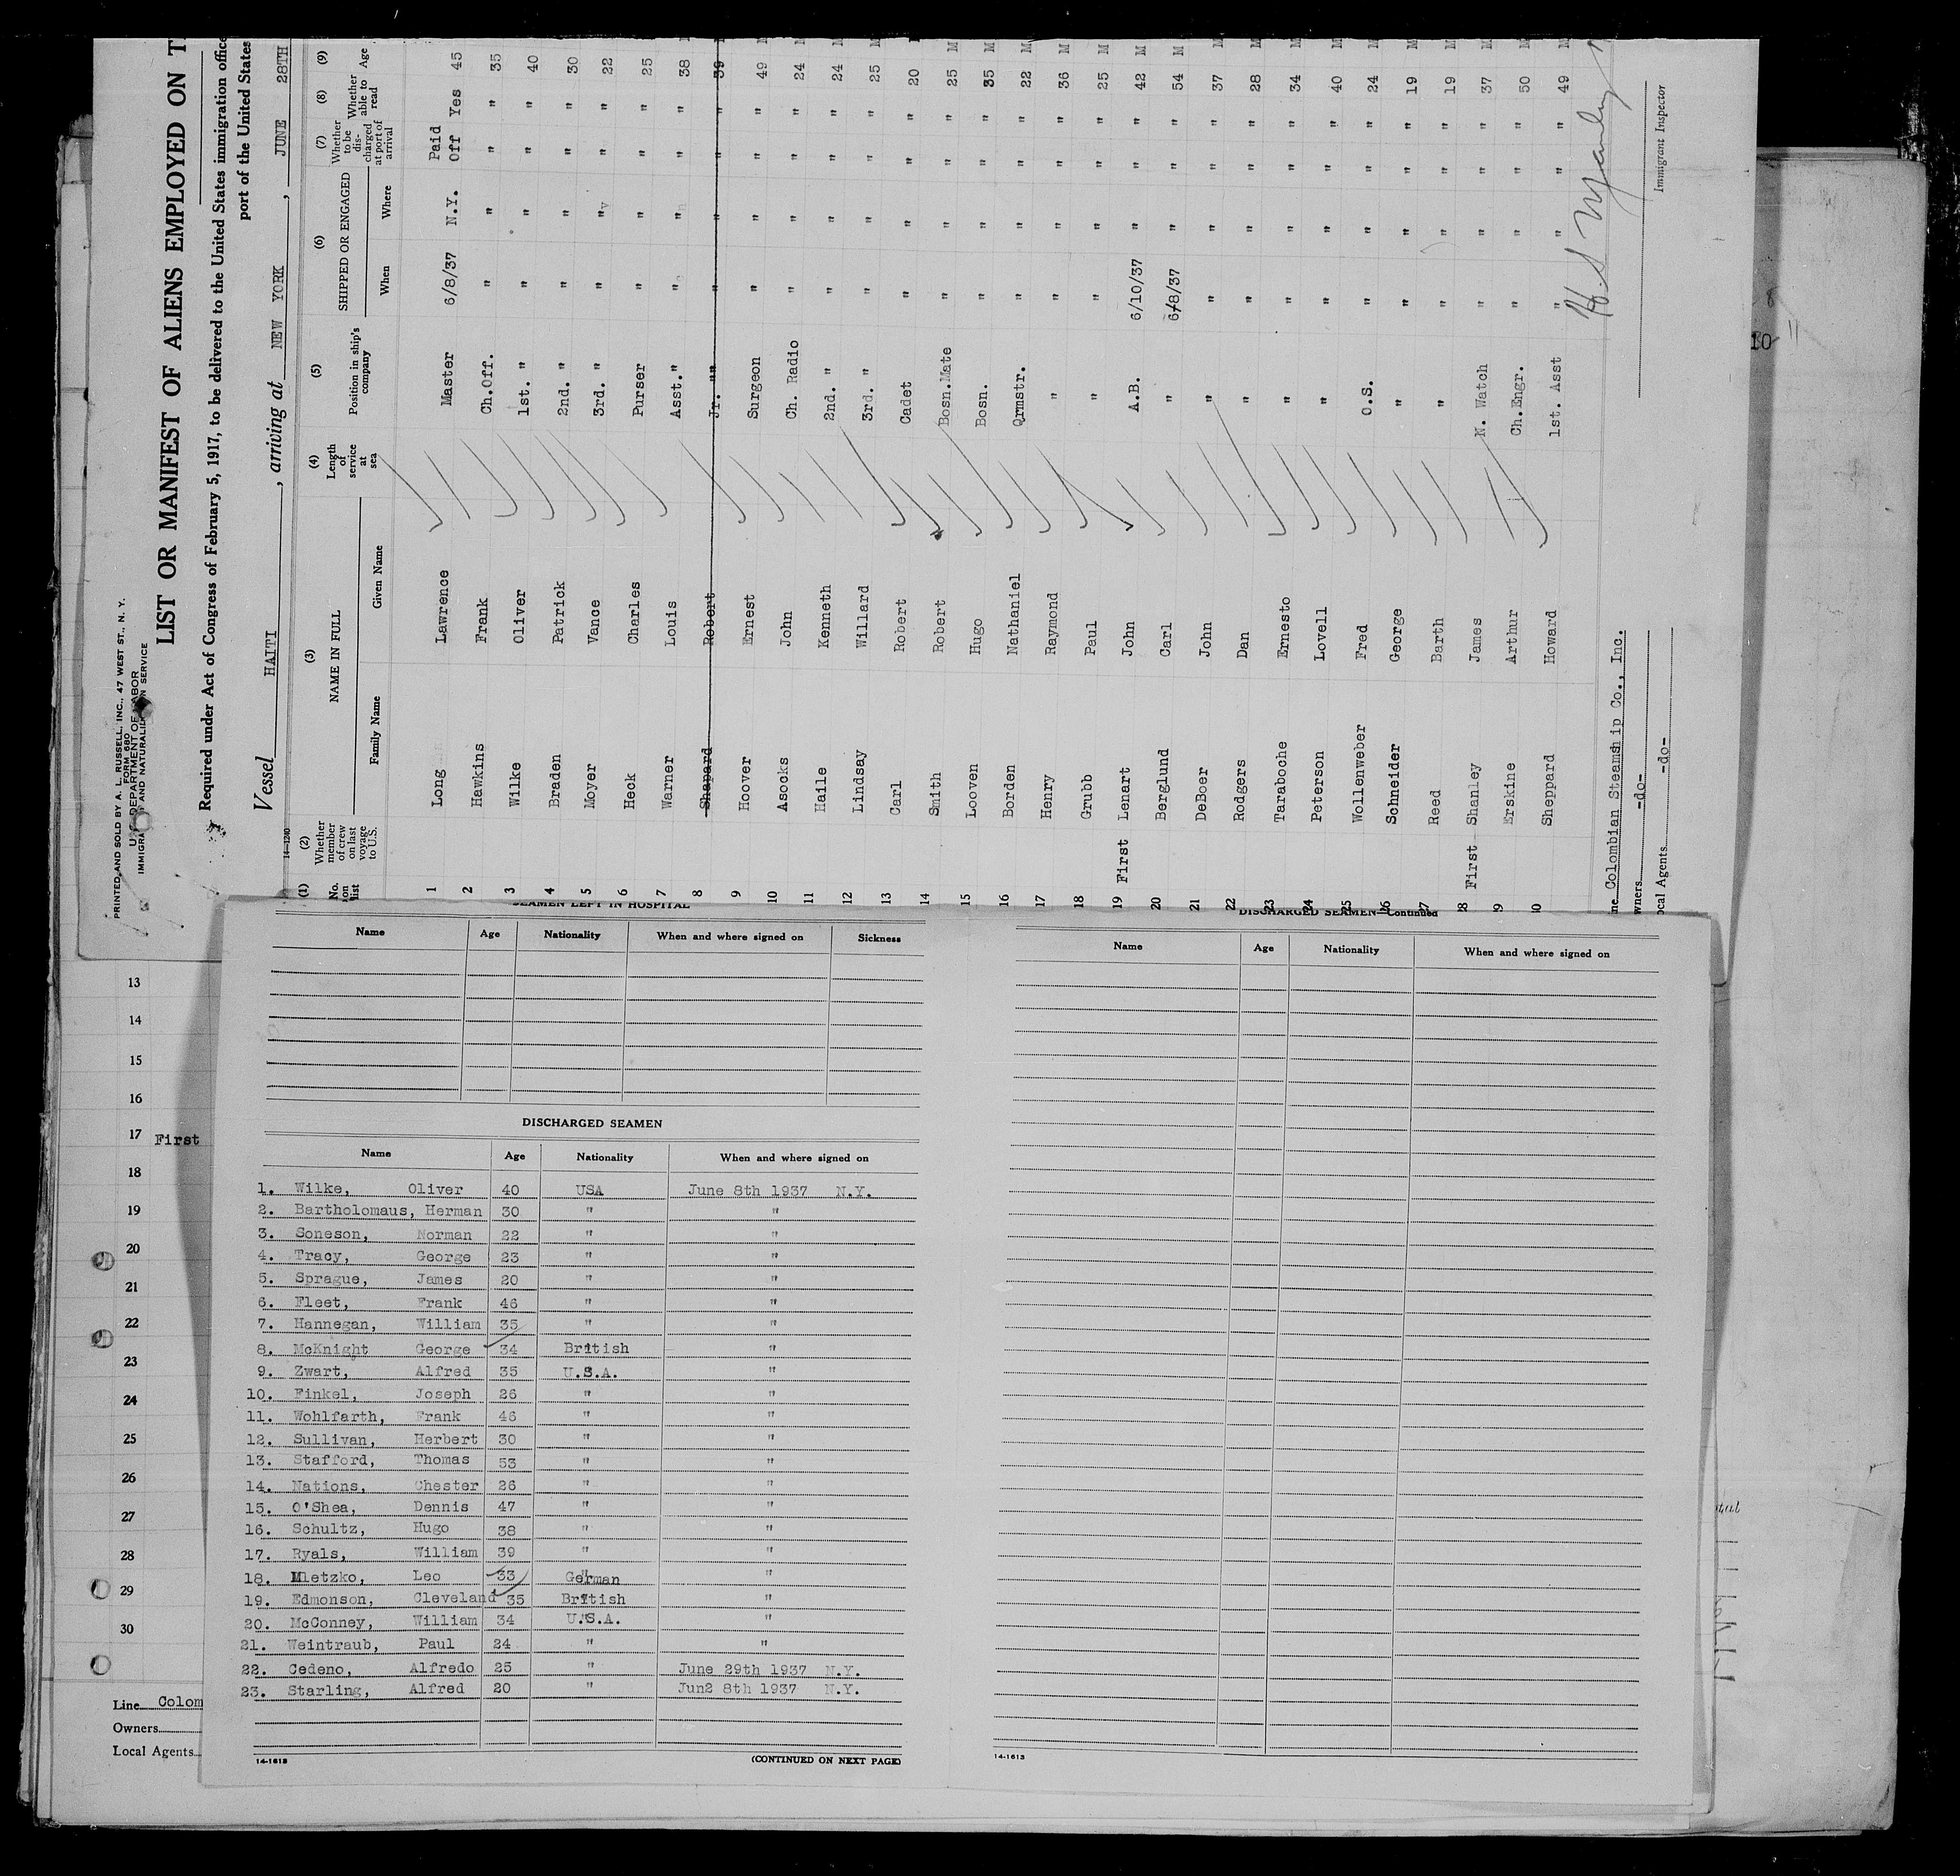 PRINTED AND SOLD BY A. L. RUSSELL, INC., 47 WEST ST., N. Y.
FORM 680
U. S. DEPARTMENT OF LABOR
IMMIGRATION AND NATURALIZATION SERVICE
LIST OR MANIFEST OF ALIENS EMPLOYED ON
Required under Act of Congress of February 5, 1917, to be delivered to the United States immigration
port of the United States
Vessel HAITI , arriving at NEW YORK , JUNE 28TH
14-1240
(1) No. on list (2) Whether member of crew on last voyage to U.S. (3) NAME IN FULL Family Name Given Name (4) Length of service at sea (5) Position in ship's company (6) SHIPPED OR ENGAGED When Where (7) Whether to be discharged at port of arrival (8) Whether able to read (9) Age
1 Long Lawrence Master 6/8/37 N.Y. Paid Off Yes 45
2 Hawkins Frank Ch.Off. " " " " 35
3 Wilke Oliver 1st. " " " " " 40
4 Braden Patrick 2nd. " " " " " 30
5 Moyer Vance 3rd. " " " " " 22
6 Heck Charles Purser " " " " 25
7 Warner Louis Asst." " " " " 38
8 Shapard Robert Jr. "" " " " " 39
9 Hoover Ernest Surgeon " " " " 49 M
10 Asocks John Ch. Radio " " " " 24 M
11 Haile Kenneth 2nd. " " " " " 24 M
12 Lindsay Willard 3rd. " " " " " 25 M
13 Carl Robert Cadet " " " " 20
14 Smith Robert Bosn.Mate " " " " 25 M
15 Looven Hugo Bosn. " " " " 35 M
16 Borden Nathaniel Qrmstr. " " " " 22 M
17 Henry Raymond " " " " " 36 M
18 Grubb Paul " " " " " 25 M
19 First Lenart John A.B. 6/10/37 " " " 42 M
20 Berglund Carl " 6/8/37 " " " 54 M
21 DeBoer John " " " " " 37 M
22 Rodgers Dan " " " " " 28 M
23 Taraboche Ernesto " " " " " 34 M
24 Peterson Lovell " " " " " 40 M
25 Wollenweber Fred O.S. " " " " 24 M
26 Schneider George " " " " " 19 M
27 Reed Barth " " " " " 19 M
28 First Shanley James N. Watch " " " " 37 M
9 Erskine Arthur Ch.Engr. " " " " 50 M
0 Sheppard Howard 1st. Asst " " " " 49 M
ne Colombian Steamship Co., Inc.
wners -do-
ocal Agents -do-
Immigrant Inspector
10 11
13
14
15
16
17 First
18
19
20
21
22
23
24
25
26
27
28
29
30
Line Colom
Owners
Local Agents
SEAMEN LEFT IN HOSPITAL
Name Age Nationality When and where signed on Sickness
DISCHARGED SEAMEN
Name Age Nationality When and where signed on
1. Wilke, Oliver 40 USA June 8th 1937 N.Y.
2. Bartholomaus, Herman 30 " "
3. Soneson, Norman 22 " "
4. Tracy, George 23 " "
5. Sprague, James 20 " "
6. Fleet, Frank 46 " "
7. Hannegan, William 35 " "
8. McKnight George 34 British "
9. Zwart, Alfred 35 U.S.A. "
10. Finkel, Joseph 26 " "
11. Wohlfarth, Frank 46 " "
12. Sullivan, Herbert 30 " "
13. Stafford, Thomas 53 " "
14. Nations, Chester 26 " "
15. O'Shea, Dennis 47 " "
16. Schultz, Hugo 38 " "
17. Ryals, William 39 " "
18. Mletzko, Leo 33 German "
19. Edmonson, Cleveland 35 British "
20. McConney, William 34 U.S.A. "
21. Weintraub, Paul 24 " "
22. Cedeno, Alfredo 25 " June 29th 1937 N.Y.
23. Starling, Alfred 20 " Jun2 8th 1937 N.Y.
14-1613 (CONTINUED ON NEXT PAGE)
DISCHARGED SEAMEN—Continued
Name Age Nationality When and where signed on
14-1613